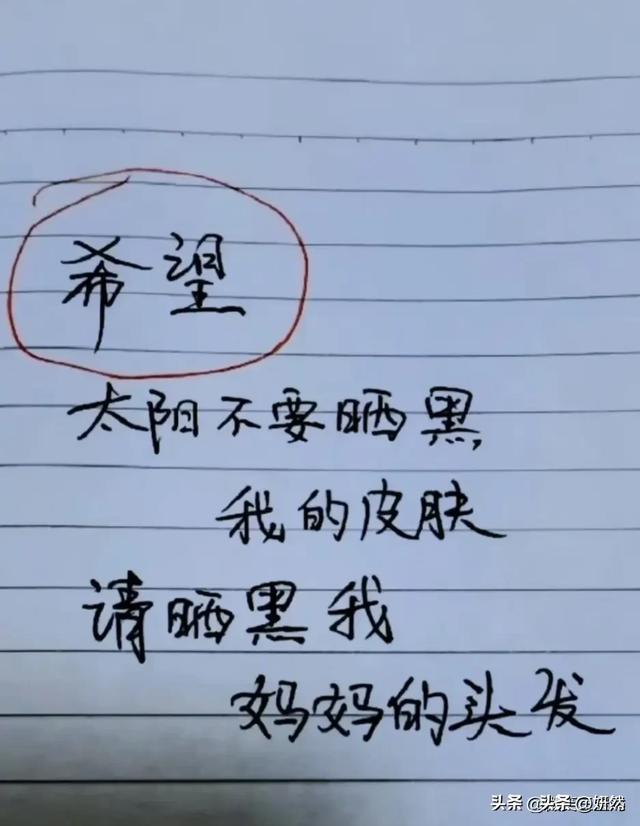 希望
太阳不要晒黑
我的皮肤
请晒黑我
妈妈的头发
头条 @头条@妍然